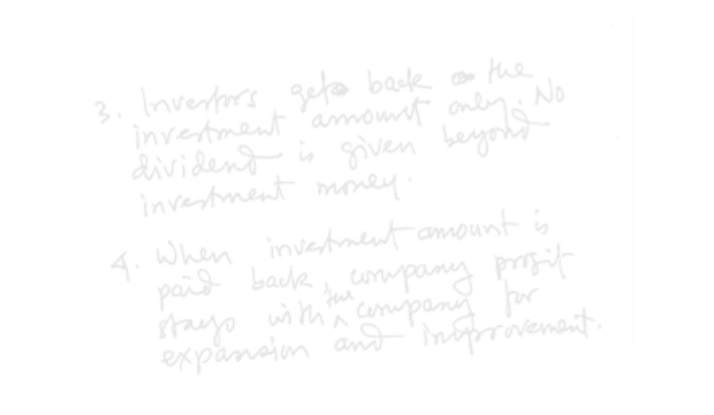 3. Investors get back the
investment amount only. No
dividend is given beyond
investment money.
4. When investment amount is
paid back company profit
stays with the company for
expansion and improvement.